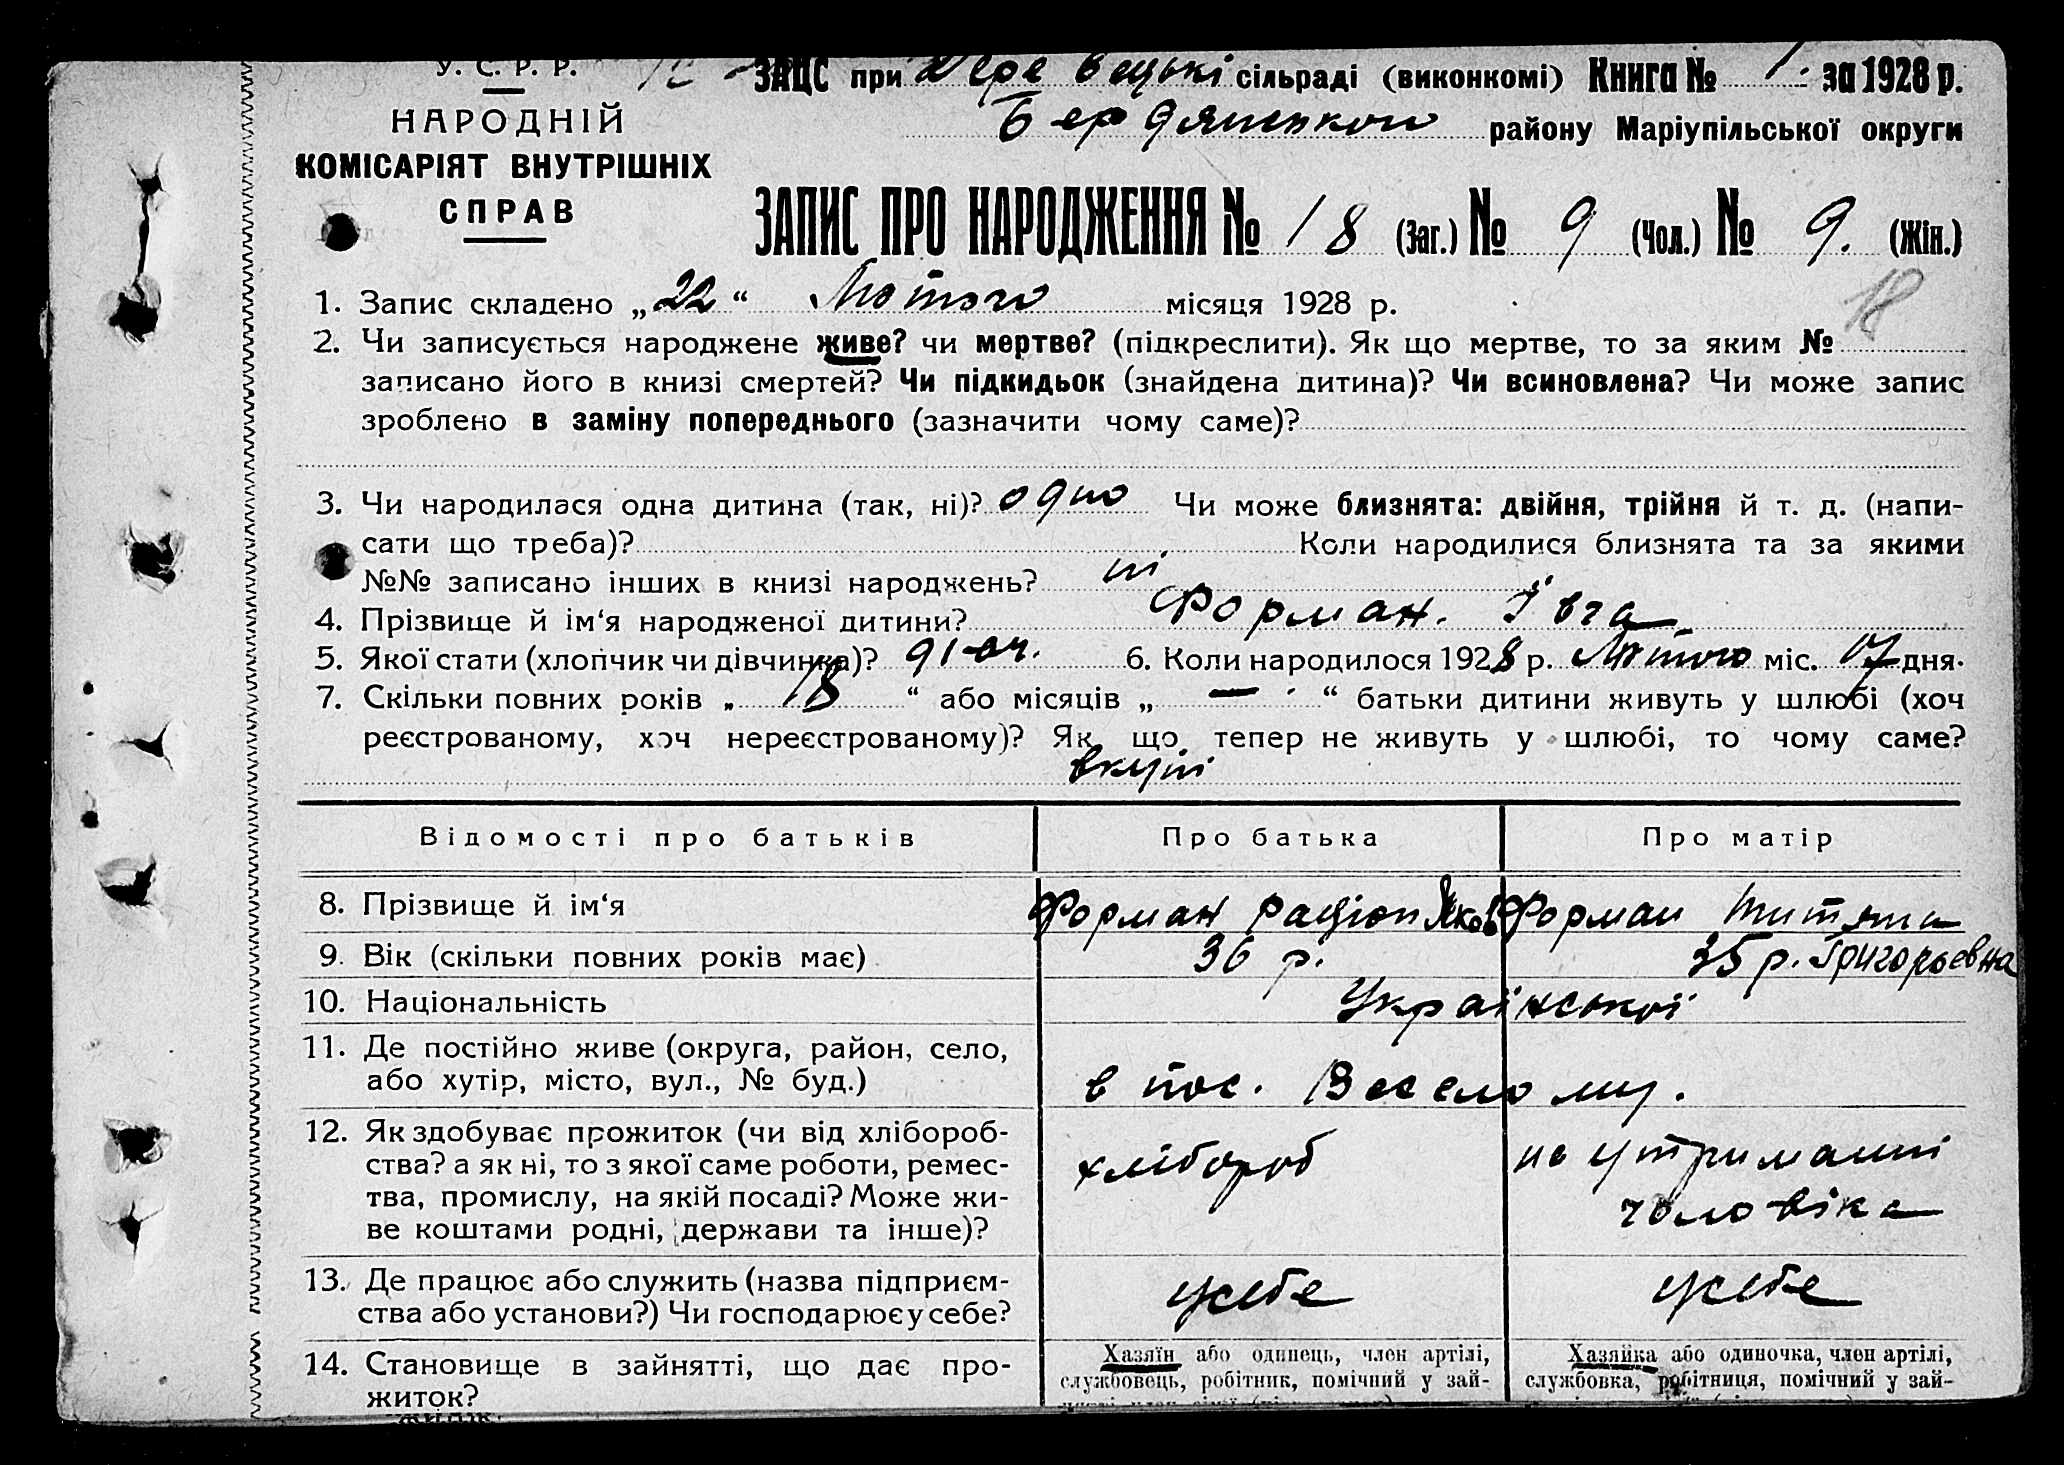 У. С. Р. Р.
НАРОДНІЙ
КОМІСАРІЯТ ВНУТРІШНІХ
СПРАВ
ЗАЦС при сільраді (виконкомі) Книга № 1. за 1928 р.
району Маріупільської округи
ЗАПИС ПРО НАРОДЖЕННЯ № 18 (Заг.) № 9 (Чол.) № 9. (Жін.)
18
1. Запис складено „22“ Лютого місяця 1928 р.
2. Чи записується народжене живе? чи мертве? (підкреслити). Як що мертве, то за яким №
записано його в книзі смертей? Чи підкидьок (знайдена дитина)? Чи всиновлена? Чи може запис
зроблено в заміну попереднього (зазначити чому саме)?
3. Чи народилася одна дитина (так, ні)? одно Чи може близнята: двійня, трійня й т. д. (напи-
сати що треба)? Коли народилися близнята та за якими
№№ записано інших в книзі народжень? ні
4. Прізвище й ім‘я народженої дитини? Форман. Івга
5. Якої стати (хлопчик чи дівчинка)? дівч. 6. Коли народилось 1928 р. Лютого міс. 17 дня.
7. Скільки повних років „ 18 “ або місяців „ — “ батьки дитини живуть у шлюбі (хоч
реєстрованому, хоч нереєстрованому)? Як що тепер не живуть у шлюбі, то чому саме?
вкупі
Відомості про батьків Про батька Про матір
8. Прізвище й ім‘я Форман Радіон Яков Форман
9. Вік (скільки повних років має) 36 р. 35 р. Григорьевна
10. Національність Української
11. Де постійно живе (округа, район, село,
або хутір, місто, вул., № буд.) в пос. Веселому.
12. Як здобуває прожиток (чи від хлібороб-
ства? а як ні, то з якої саме роботи, ремес-
тва, промислу, на якій посаді? Може жи-
ве коштами родні, держави та інше)?
хлібороб
на утриманні
чоловіка
13. Де працює або служить (назва підприєм-
ства або установи?) Чи господарює у себе?
у себе у себе
14. Становище в зайнятті, що дає про-
житок?
Хазяїн або одинець, член артілі,
службовець, робітник, помічний у зай-
Хазяйка або одиночка, член артілі,
службовка, робітниця, помічний у зай-